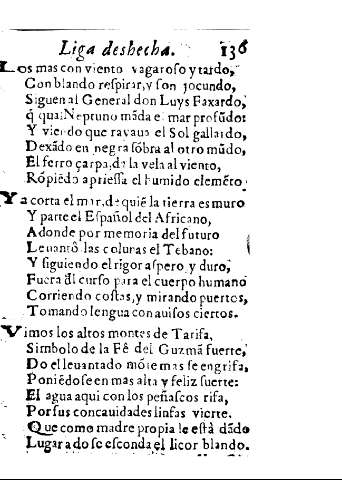 Liga deshecha. 136
Los mas con viento vagaroso y tardo,
Con blando respirar, y son jocundo,
Siguen al General don Luys Faxardo,
q̃ qual Neptuno mãda el mar profũdo:
Y viendo que rayaua el Sol gallardo,
Dexãdo en negra sõbra al otro mũdo,
El ferro çarpa, da la vela al viento,
Rõpiẽdo apriessa el humido elemẽto.
Ya corta el mar, de quiẽ la tierra es muro
Y parte el Español del Africano,
Adonde por memoria del futuro
Leuantô las colunas el Tebano:
Y siguiendo el rigor aspero y duro,
Fuera dl curso para el cuerpo humano
Corriendo costas, y mirando puertos,
Tomando lengua con auisos ciertos.
Vimos los altos montes de Tarifa,
Simbolo de la Fê del Guzmã fuerte,
Do el leuantado mõte mas se engrifa,
Poniẽdose en mas alta y feliz suerte:
El agua aqui con los peñascos rifa,
Por sus concauidades linfas vierte,
Que como madre propia le està dãdo
Lugar a do se esconda el licor blando.